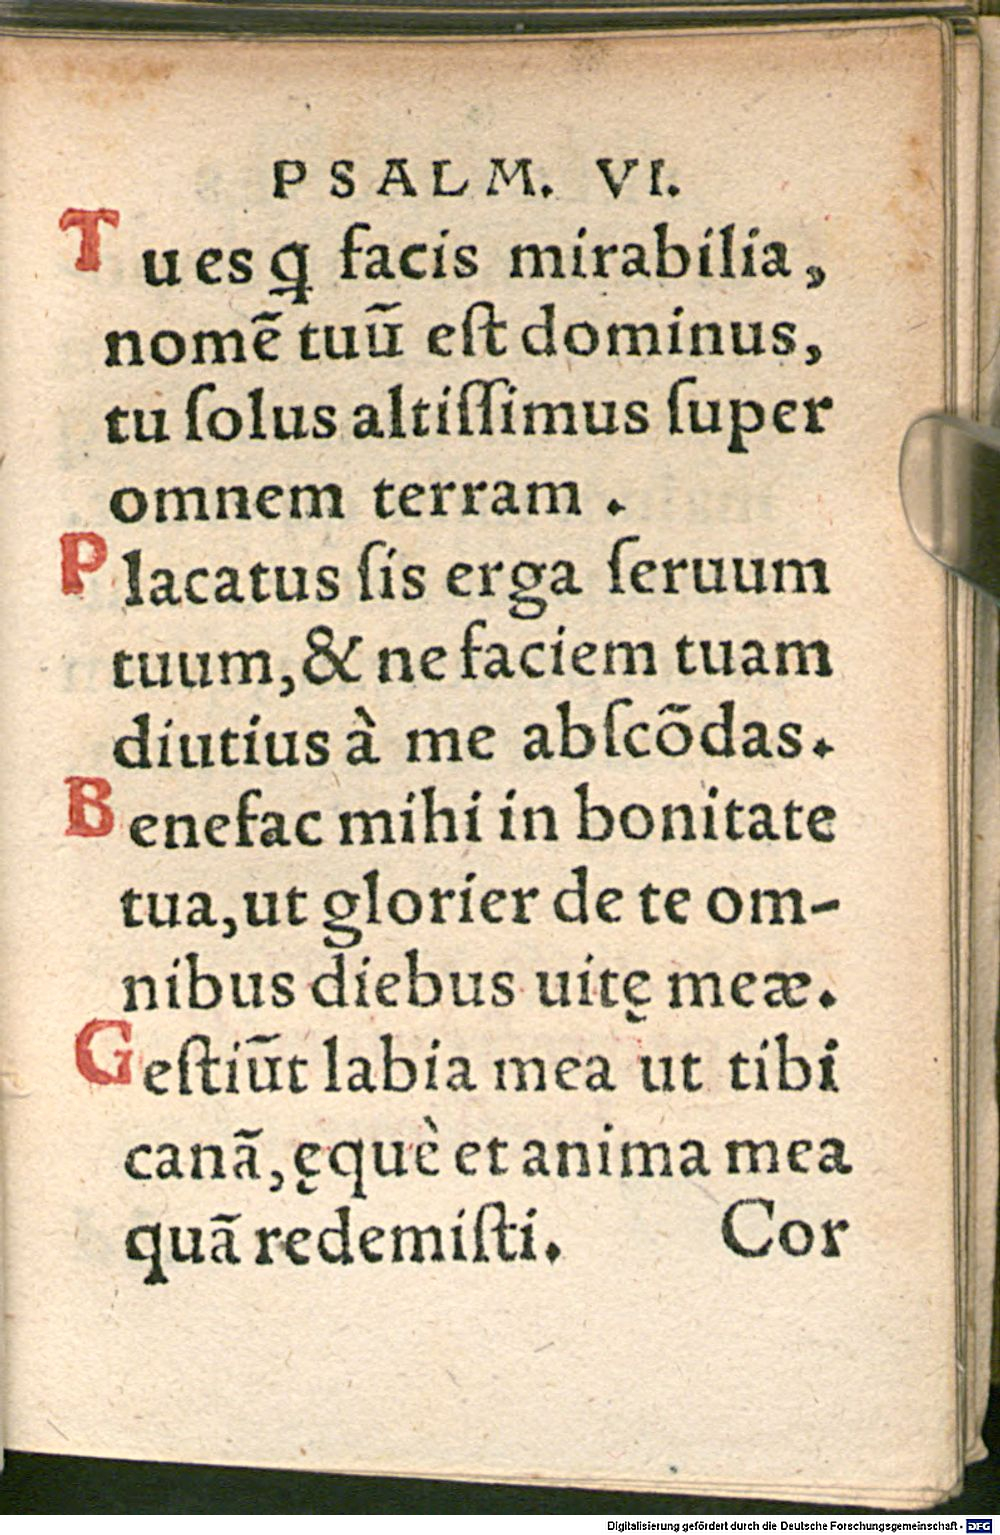 PSALM. VI.
Tu es ꝗ facis mirabilia,
nomē tuū est dominus,
tu ſolus altiſſimus ſuper
omnem terram .
Placatus ſis erga ſeruum
tuum, & ne faciem tuam
diutius à me abſcōdas.
Benefac mihi in bonitate
tua, ut glorier de te om-
nibus diebus uitę meæ.
Geſtiūt labia mea ut tibi
canā, ęquè et anima mea
quā redemiſti.
Cor
Digitalisierung gefördert durch die Deutsche Forschungsgemeinschaft - DFG